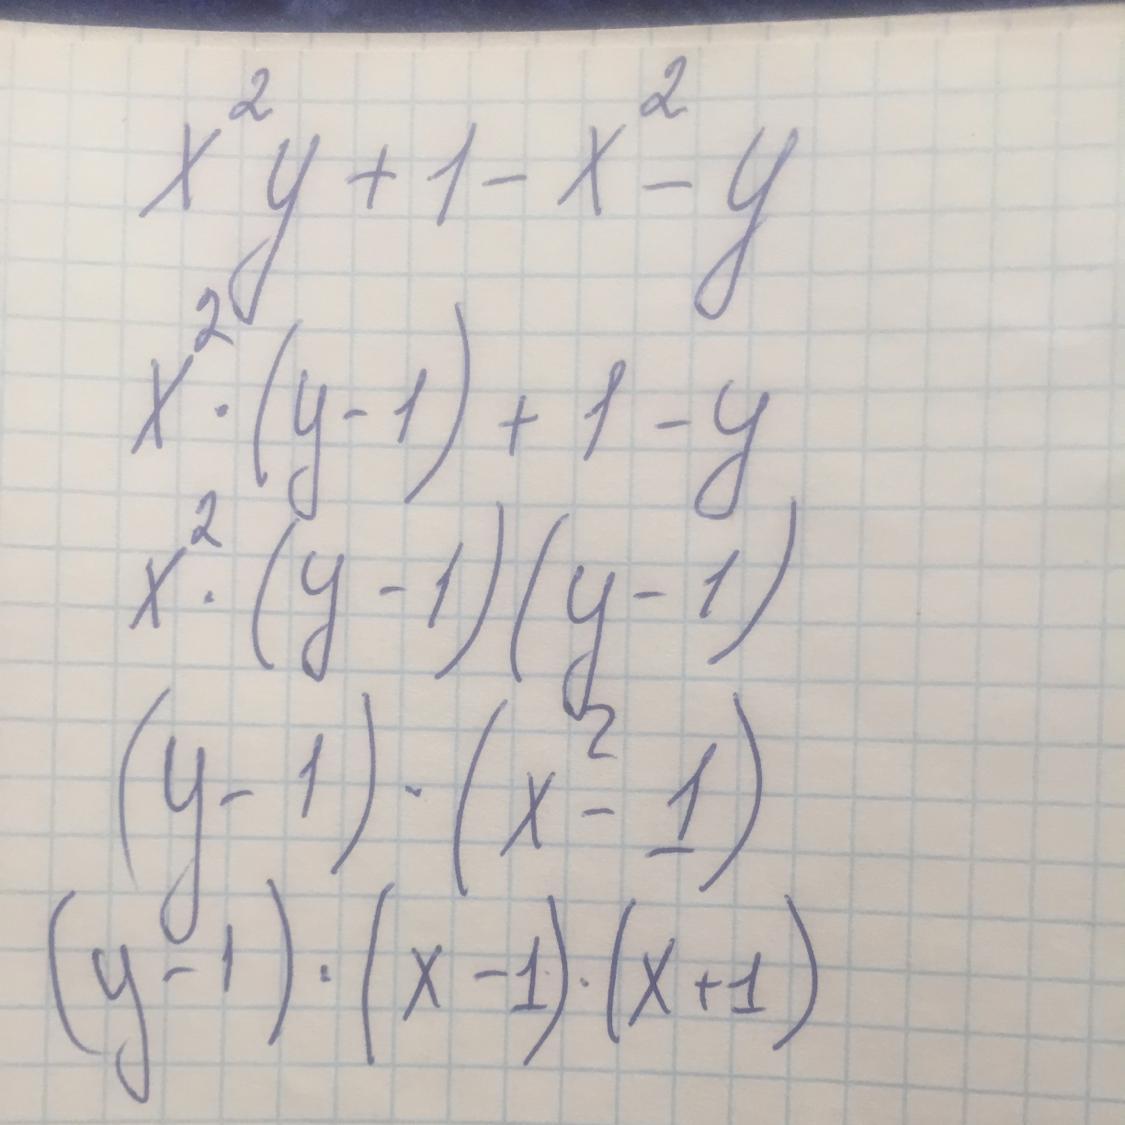 x²y + 1 - x² - y
x² · (y - 1) + 1 - y
x² · (y - 1) (y - 1)
(y - 1) · (x² - 1)
(y - 1) · (x - 1) · (x + 1)